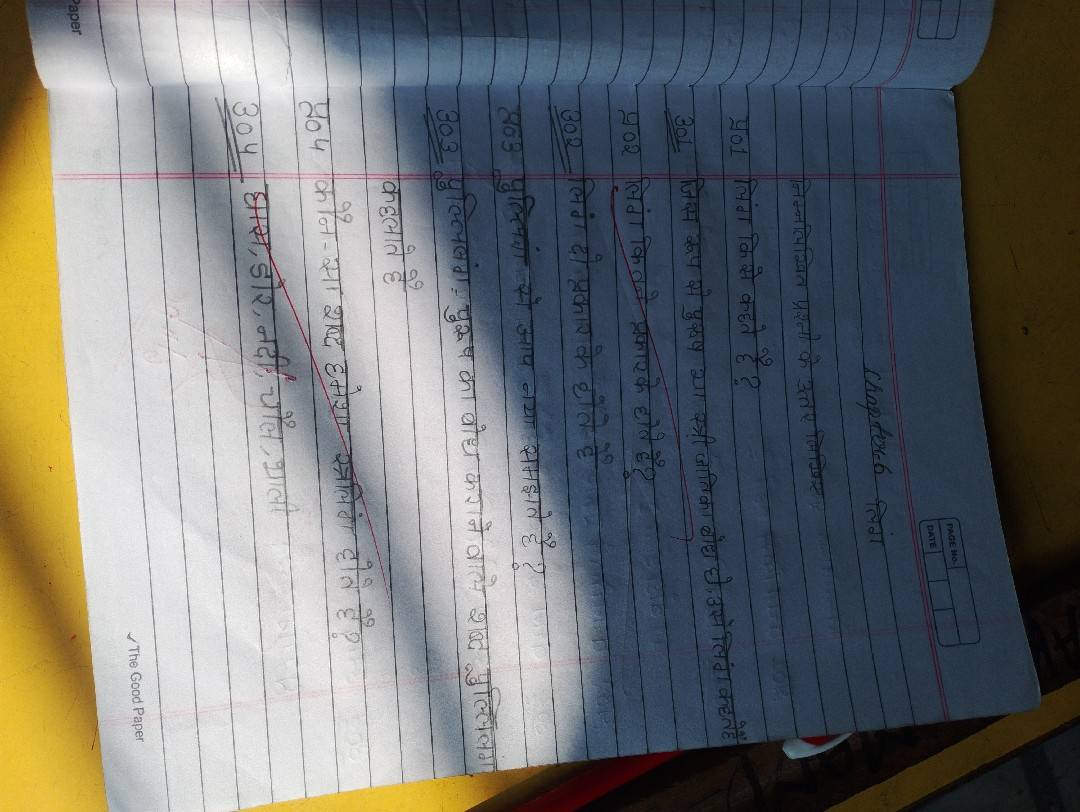 PAGE NO.
DATE
Chapter-6 लिंग
निम्नलिखित प्रश्नो के उत्तर लिखिए
प्र01 लिंग किसे कहते है?
उ01 जिस रूप से पुरूष या स्त्री जाति का बोध हो, उसे लिंग कहते है
प्र02 लिंग कितने प्रकार के होते है?
उ02 लिंग दो प्रकार के होते है
प्र03 पुल्लिंग से आप क्या समझते है?
उ03 पुल्लिंग : पुरूष का बोध कराने वाले शब्द पुल्लिंग
कहलाते है
प्र04 कौन-सा शब्द हमेशा स्त्रीलिंग होते है?
उ04 छाया, डोर, नदी, चील,
✓ The Good Paper
Paper